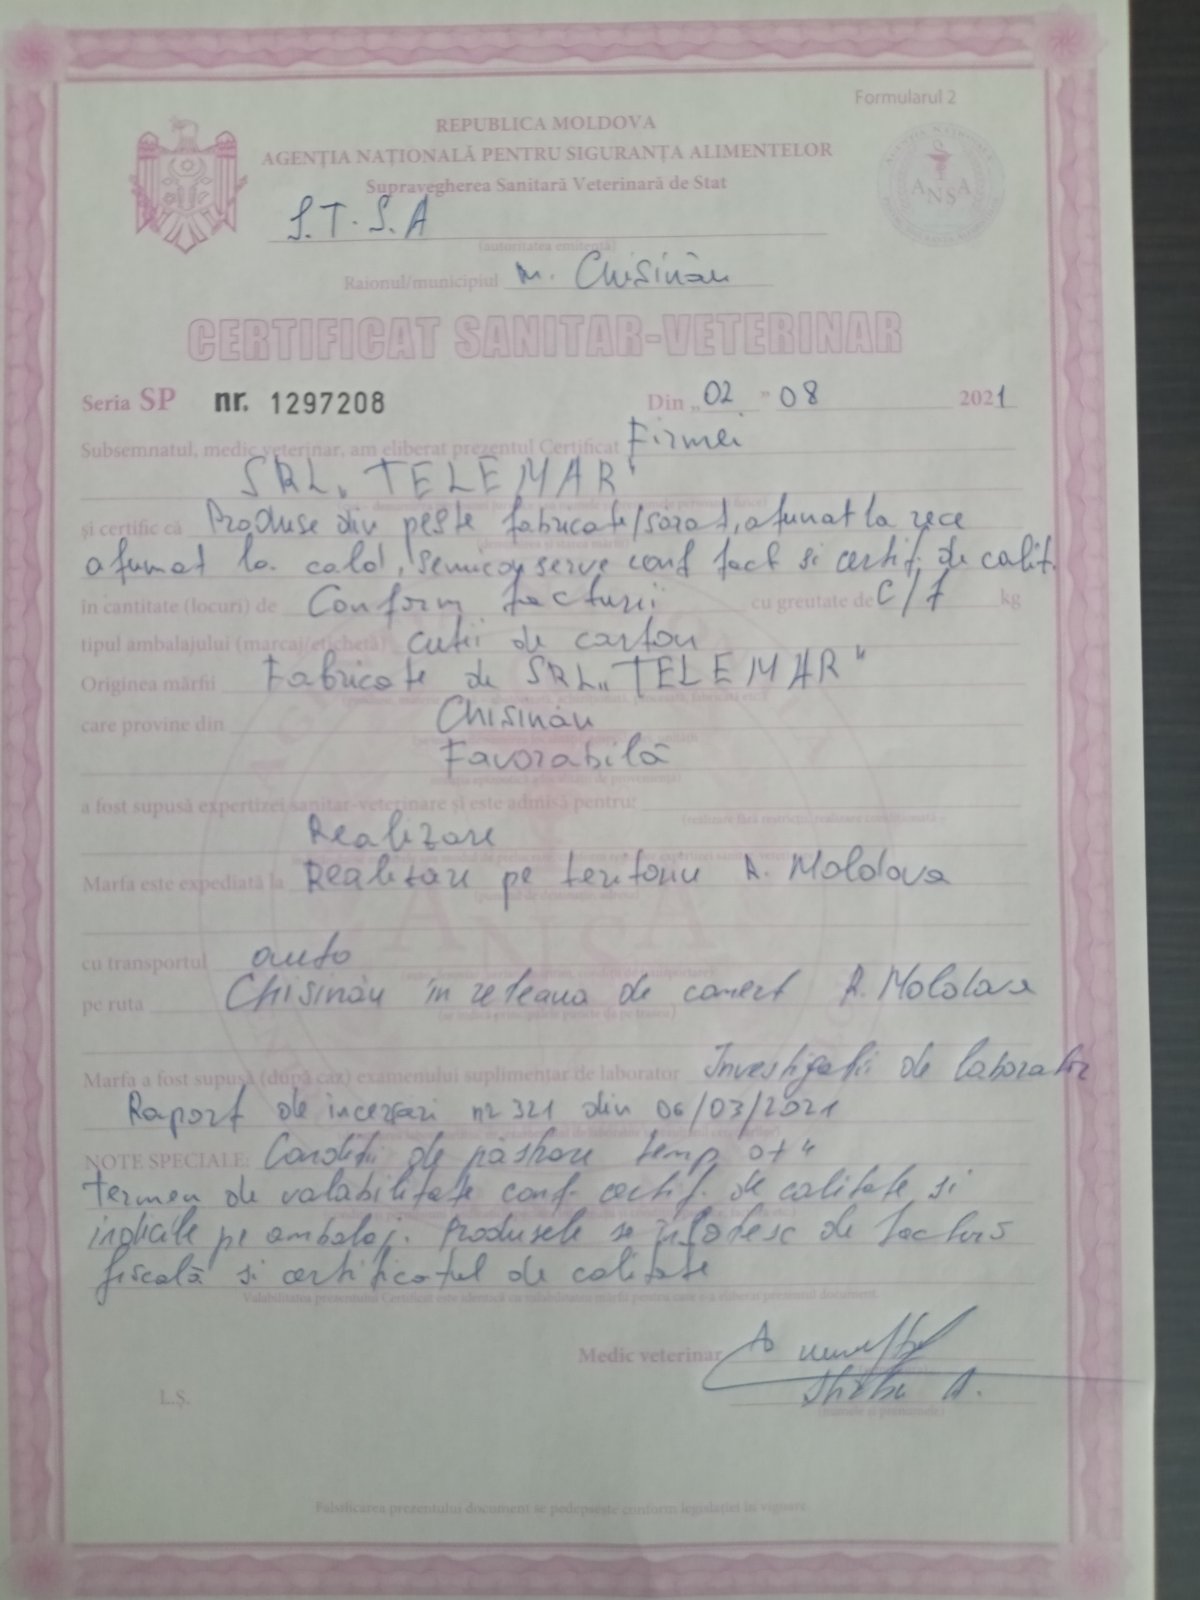 Formularul 2
REPUBLICA MOLDOVA
AGENȚIA NAȚIONALĂ PENTRU SIGURANȚA ALIMENTELOR
Supravegherea Sanitară Veterinară de Stat
ANSA
S.T.S.A
(autoritatea emitentă)
Raionul/municipiul m. Chisinău
CERTIFICAT SANITAR-VETERINAR
Seria SP nr. 1297208 Din „02" 08 2021
Subsemnatul, medic veterinar, am eliberat prezentul Certificat Firmei
SRL „TELEMAR"
și certific că Produse din peste fabricate/sarat, afumat la rece
afumat la cald, semiconserve conf fact si certif. de calit.
în cantitate (locuri) de Conform facturii cu greutate de C/f kg
tipul ambalajului (marcaj/etichetă) cutii de carton
Originea mărfii Fabricate de SRL „TELEMAR"
care provine din Chisinău
Favorabilă
a fost supusă expertizei sanitar-veterinare și este admisă pentru:
Realizare
Marfa este expediată la Realizare pe teritoriu R. Moldova
cu transportul auto
pe ruta Chisinău în reteaua de comert R. Moldova
(se indică principalele puncte de pe traseu)
Marfa a fost supusă (după caz) examenului suplimentar de laborator Investigatii de laborator
Raport de incercări nr 321 din 06/03/2021
NOTE SPECIALE: Conditii de păstrare temp 0+4
termen de valabilitate conf. certif. de calitate si
indicile pe ambalaj. Produsele se de factura
fiscală si certificatul de calitate
Valabilitatea prezentului Certificat este identică cu valabilitatea mărfii pentru care s-a eliberat prezentul document
Medic veterinar
A.
(numele și prenumele)
L.Ș.
Falsificarea prezentului document se pedepsește conform legislației în vigoare